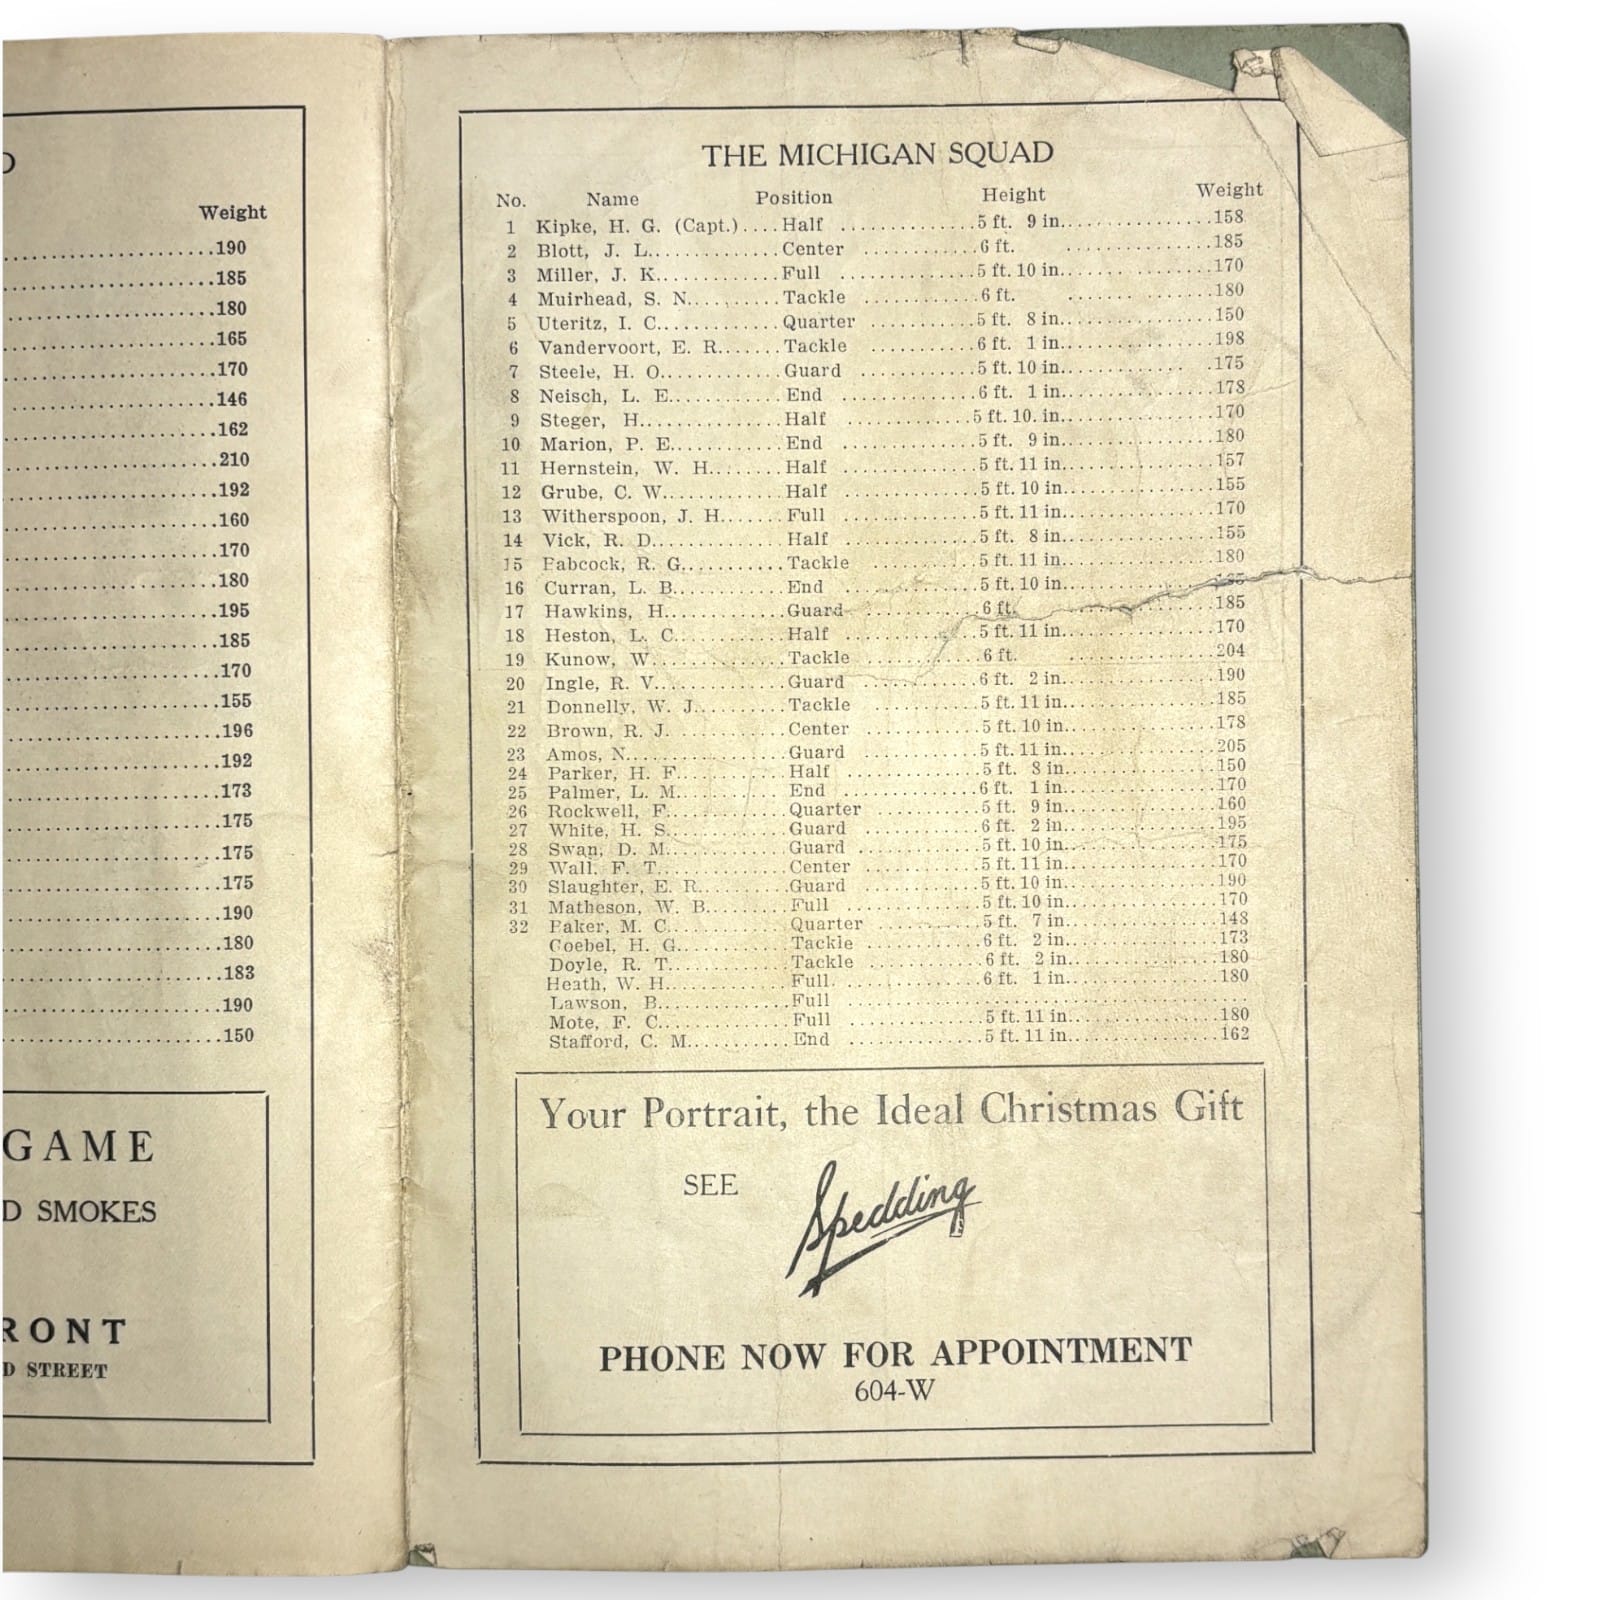 D
Weight
190
185
180
165
170
146
162
210
192
160
170
180
195
185
170
155
196
192
173
175
175
175
190
180
183
190
150
GAME
D SMOKES
RONT
D STREET
THE MICHIGAN SQUAD
No. Name Position Height Weight
1 Kipke, H. G. (Capt.)....Half .............5 ft. 9 in...............158
2 Blott, J. L.............Center ...........6 ft. ..............185
3 Miller, J. K............Full .............5 ft. 10 in..............170
4 Muirhead, S. N..........Tackle ...........6 ft. ..............180
5 Uteritz, I. C...........Quarter ..........5 ft. 8 in..............150
6 Vandervoort, E. R.......Tackle ...........6 ft. 1 in..............198
7 Steele, H. O............Guard ............5 ft. 10 in..............175
8 Neisch, L. E............End .............6 ft. 1 in..............178
9 Steger, H..............Half ............5 ft. 10. in..............170
10 Marion, P. E...........End .............5 ft. 9 in..............180
11 Hernstein, W. H........Half .............5 ft. 11 in..............157
12 Grube, C. W............Half ............5 ft. 10 in..............155
13 Witherspoon, J. H.......Full .............5 ft. 11 in..............170
14 Vick, R. D.............Half ............5 ft. 8 in..............155
15 Babcock, R. G..........Tackle ...........5 ft. 11 in..............180
16 Curran, L. B...........End .............5 ft. 10 in..............
17 Hawkins, H.............Guard ............6 ft. ..............185
18 Heston, L. C...........Half ............5 ft. 11 in..............170
19 Kunow, W..............Tackle ...........6 ft. ..............204
20 Ingle, R. V............Guard ............6 ft. 2 in..............190
21 Donnelly, W. J.........Tackle ...........5 ft. 11 in..............185
22 Brown, R. J............Center ...........5 ft. 10 in..............178
23 Amos, N...............Guard ............5 ft. 11 in..............205
24 Parker, H. F...........Half ............5 ft. 8 in..............150
25 Palmer, L. M...........End .............6 ft. 1 in..............170
26 Rockwell, F............Quarter ..........5 ft. 9 in..............160
27 White, H. S............Guard ............6 ft. 2 in..............195
28 Swan, D. M.............Guard ............5 ft. 10 in..............175
29 Wall, F. T.............Center ...........5 ft. 11 in..............170
30 Slaughter, E. R.........Guard ............5 ft. 10 in..............190
31 Matheson, W. B.........Full .............5 ft. 10 in..............170
32 Baker, M. C............Quarter ..........5 ft. 7 in..............148
Goebel, H. G...........Tackle ...........6 ft. 2 in..............173
Doyle, R. T............Tackle ...........6 ft. 2 in..............180
Heath, W. H............Full.............6 ft. 1 in..............180
Lawson, B.............Full ..............................
Mote, F. C.............Full .............5 ft. 11 in..............180
Stafford, C. M..........End .............5 ft. 11 in..............162
Your Portrait, the Ideal Christmas Gift
SEE Spedding
PHONE NOW FOR APPOINTMENT
604-W